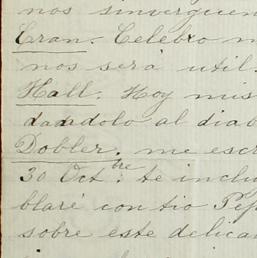 nos sinvergüen
Eran. Celebro m
nos será util.
Hall. Hoy mis
dandolo al diab
Dobler. me escr
30 Octbre. te inclu
blaré con tio Pep
sobre este delica